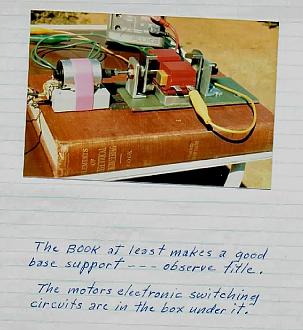 ELEMENTS
OF
The BOOK at least makes a good
base support --- observe title.
The motors electronic switching
circuits are in the box under it.